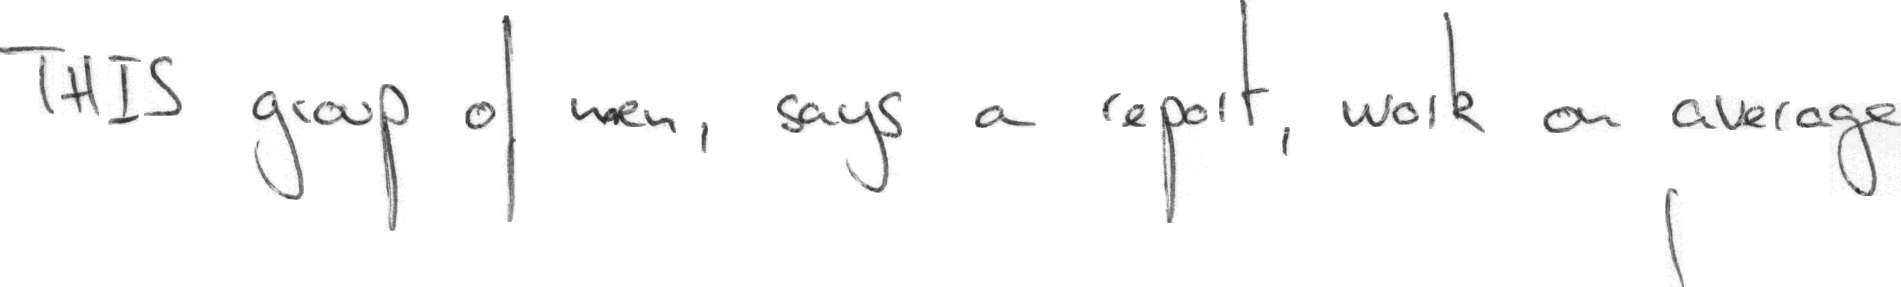 THIS group of men, says a report, work on average